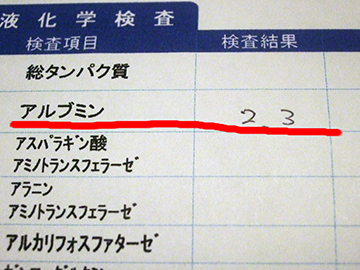 液化学検査
検査項目 検査結果
総タンパク質
アルブミン 2.3
アスパラギン酸
アミノトランスフェラーゼ
アラニン
アミノトランスフェラーゼ
アルカリフォスファターゼ